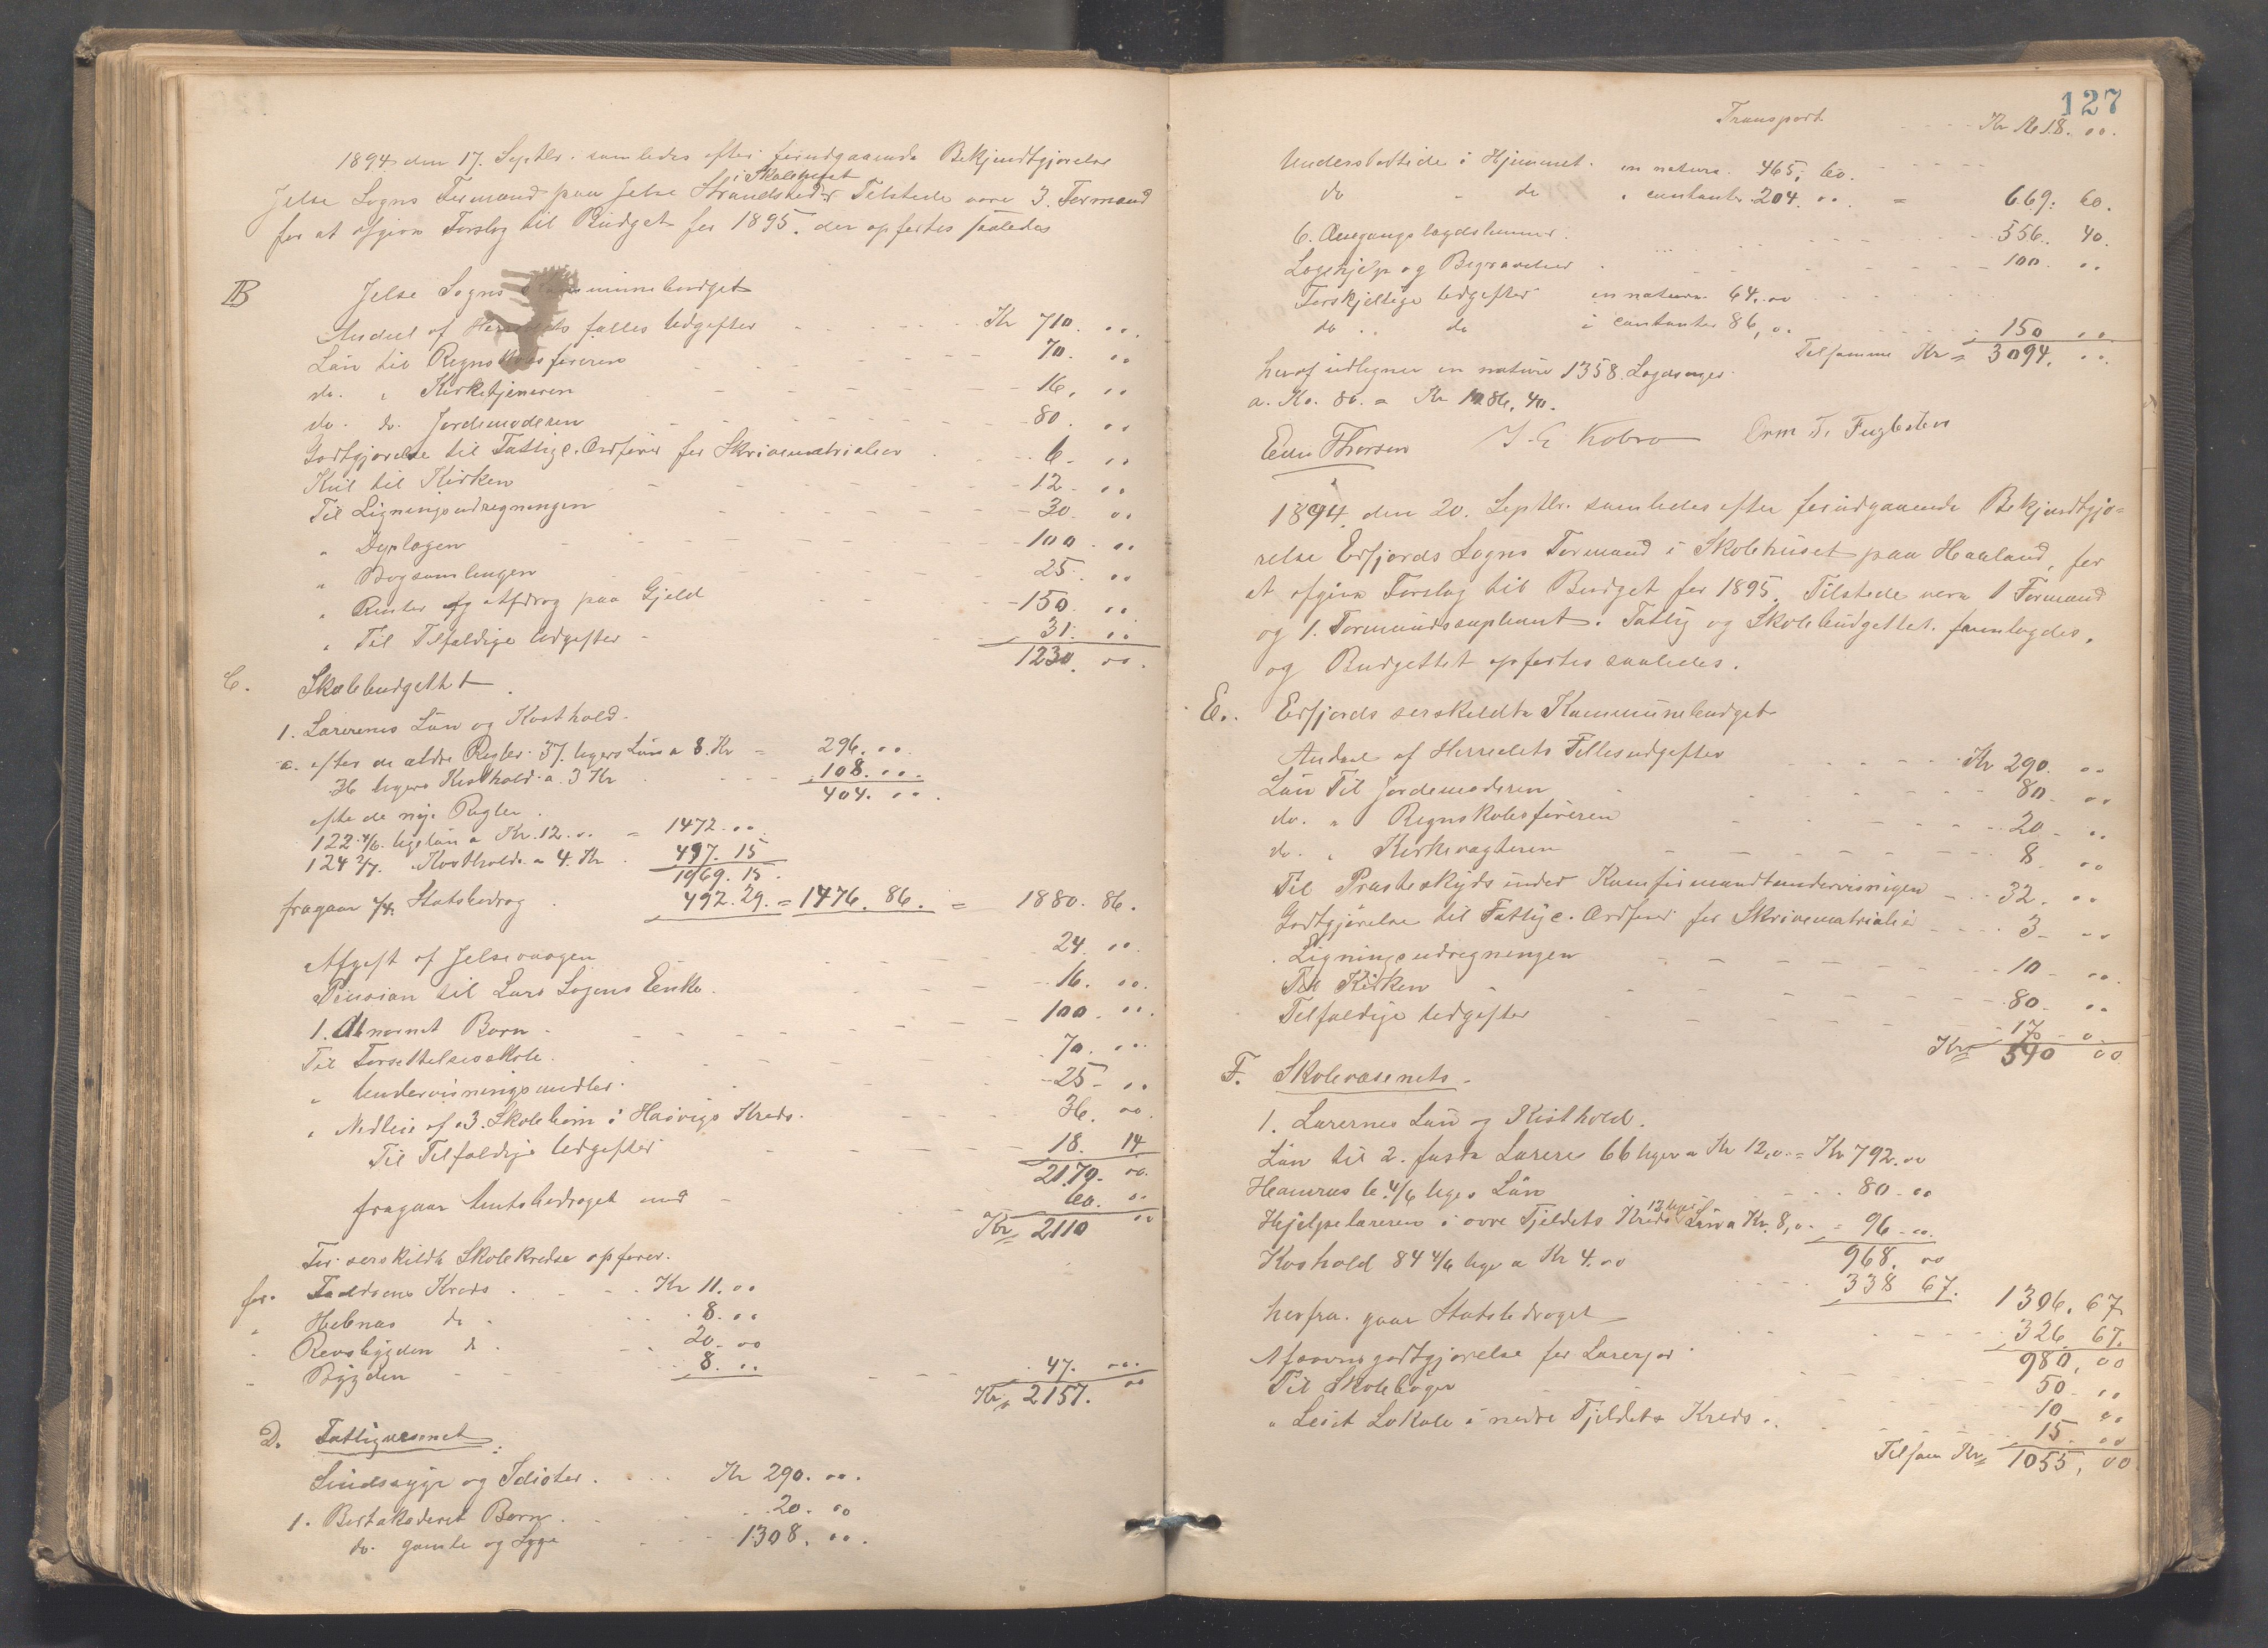 1894 den 17. Septbr. samledes efter forudgaaende Bekjendtgjørelse
i Skolehuset
Jelse Sogns Formænd paa Jelse Strandsted. Tilstede vare 3 Formænd
for at afgive Forslag til Budget for 1895. der opførtes saaledes
B Jelse Sogns Kommunebudget
Andeel af Herredets fælles Udgifter Kr 710. 00.
Løn til Regnskabsføreren 70. 00
do. " Kirketjeneren 16, 00
do. do. Jordemoderen 80. 00
Godtgjørelse til Fattigc. Ordfører for Skrivematrialier 6. 00
Kul til Kirken 12. 00
Til Ligningsudregningen 30. 00
" Dyrlægen 100. 00
" Bogsamlingen 25. 00
" Renter og Afdrag paa Gjeld 150. 00
" Til Tilfældige Udgifter 31. 00
1230. 00.
C. Skolebudgettet
1. Lærernes Løn og Kosthold.
a. efter de ældre Regler. 37. Ugers Løn a 8. Kr = 296. 00.
36 Ugers Kosthold a. 3 Kr 108. 00.
404. 00.
efter de nye Regler.
122 4/6 Ugeløn a Kr. 12. 00 = 1472. 00.
124 2/7. Kosthold a 4. Kr. 497. 15
1969. 15.
fragaar 1/4 Statsbidrag 492. 29. = 1476. 86. = 1880. 86.
Afgift af Jelsevaagen 24. 00.
Pension til Lars Sogens Enke. 16. 00.
1. Abnormt Barn 100. 00.
Til Forsettelsesskole. 70. 00.
" Undervisningsmidler. 25. 00
" Nedleie af 3. Skolebørn i Haavigs Kreds. 36. 00.
Til Tilfældige Udgifter 18. 14
2179. 00.
fragaar Amtsbidraget med 60. 00
Kr 2110 00
For serskildte Skolekredse opføres.
for. Foldøens Kreds Kr 11. 00
" Hebnes do 8. 00
" Revsbygden do 20. 00
" Bygden 8. 00 47. 00.
Kr. 2157. 00
D. Fattigvesenet.
Sindssyge og Idioter. Kr 290. 00.
1. Bortakoderet Barn. 20. 00
do. gamle og Syge 1308. 00.
127
Transport. Kr 1618. 00.
Understøttede i Hjemmet. in natura. 465, 60.
do " do " contanter. 204. 00. = 669. 60.
6. Omgangslægdslemmer. 556. 40.
Lægehjelp og Begravelser 100. 00
Forskjellige Udgifter in natura 64. 00
do " do i contanter 86, 00 150 00
Tilsammen Kr = 3094, 00.
heraf udlignes in natura 1358. Lægdsuger
a. Kr. 80. = Kr 1086, 40.
T. E. Kobro Orm T. Fuglestein
1894. den 20. Septbr. samledes efter forudgaaende Bekjendtgjø-
relse Erfjords Sogns Formænd i Skolehuset paa Haaland, for
at afgive Forslag til Budget for 1895. Tilstede vare 1 Formand
og 1. Formandssupleant. Fattig og Skolebudgettet fremlagdes.
og Budgettet opførtes saaledes.
E. Erfjords serskildte Kommunebudget
Andeel af Herredets Fellesudgifter Kr 290. 00
Løn Til Jordemoderen 80. 00
do. " Regnskabsføreren 20. 00
do. " Kirkevægteren 8 00
Til Presteskyds under Konfirmandtundervisningen 32. 00
Godtgjørelse til Fattigc. Ordfører for Skrivematrialier 3 00
" Ligningsudregningen 10 00.
Til Kirken 80. 00
Tilfældige Udgifter 17 0.
Kr 540 00
F. Skolevæsenets.
1. Lærernes Løn og Kosthold.
Løn til 2. faste Lærere 66 Uger a Kr 12,00 = Kr 792. 00
6 4/6 Uges Løn 80. 00
12 Uger
Hjelpelæreren i øvre Tjeldets Kreds Løn a Kr. 8,00 = 96. 00.
968. 00
Koshold 84 4/6 Uge a Kr 4. 00 338 67. 1306. 67
herfra. gaar Statsbidraget 326. 67.
980, 00
Afsavnsgodtgjørelse for Lærerjor 50. 00
Til Skolebøger 10 00
" Leiet Lokale i nedre Tjeldets Kreds. 15. 00
Tilsam Kr 1055, 00